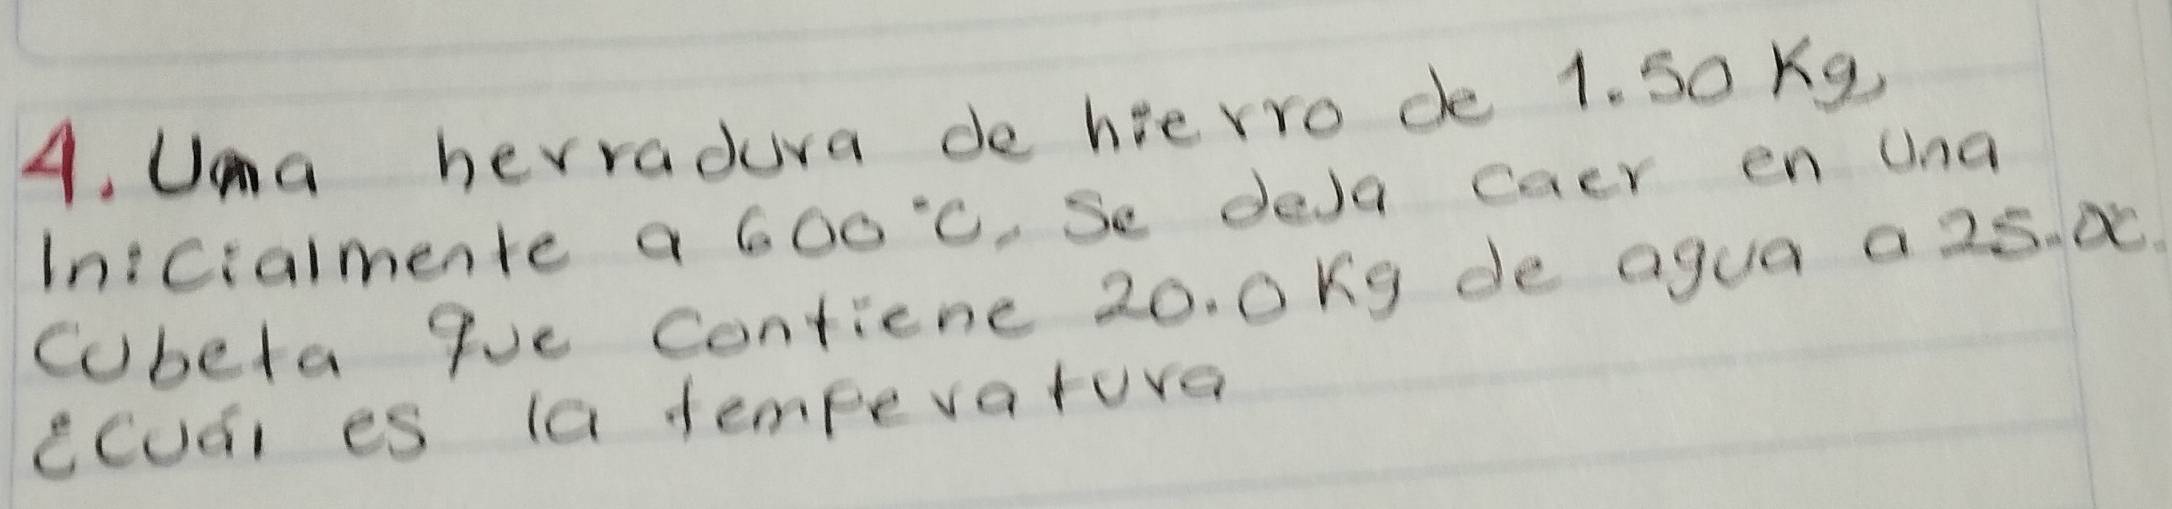 4. Una herradura de hierro de 1.50 Kg,
Inicialmente a 600°C, Se deja caer en una
Cubeta que Contiene 20.0 Kg de agua a 25.0c.
¿Cuál es la temperatura